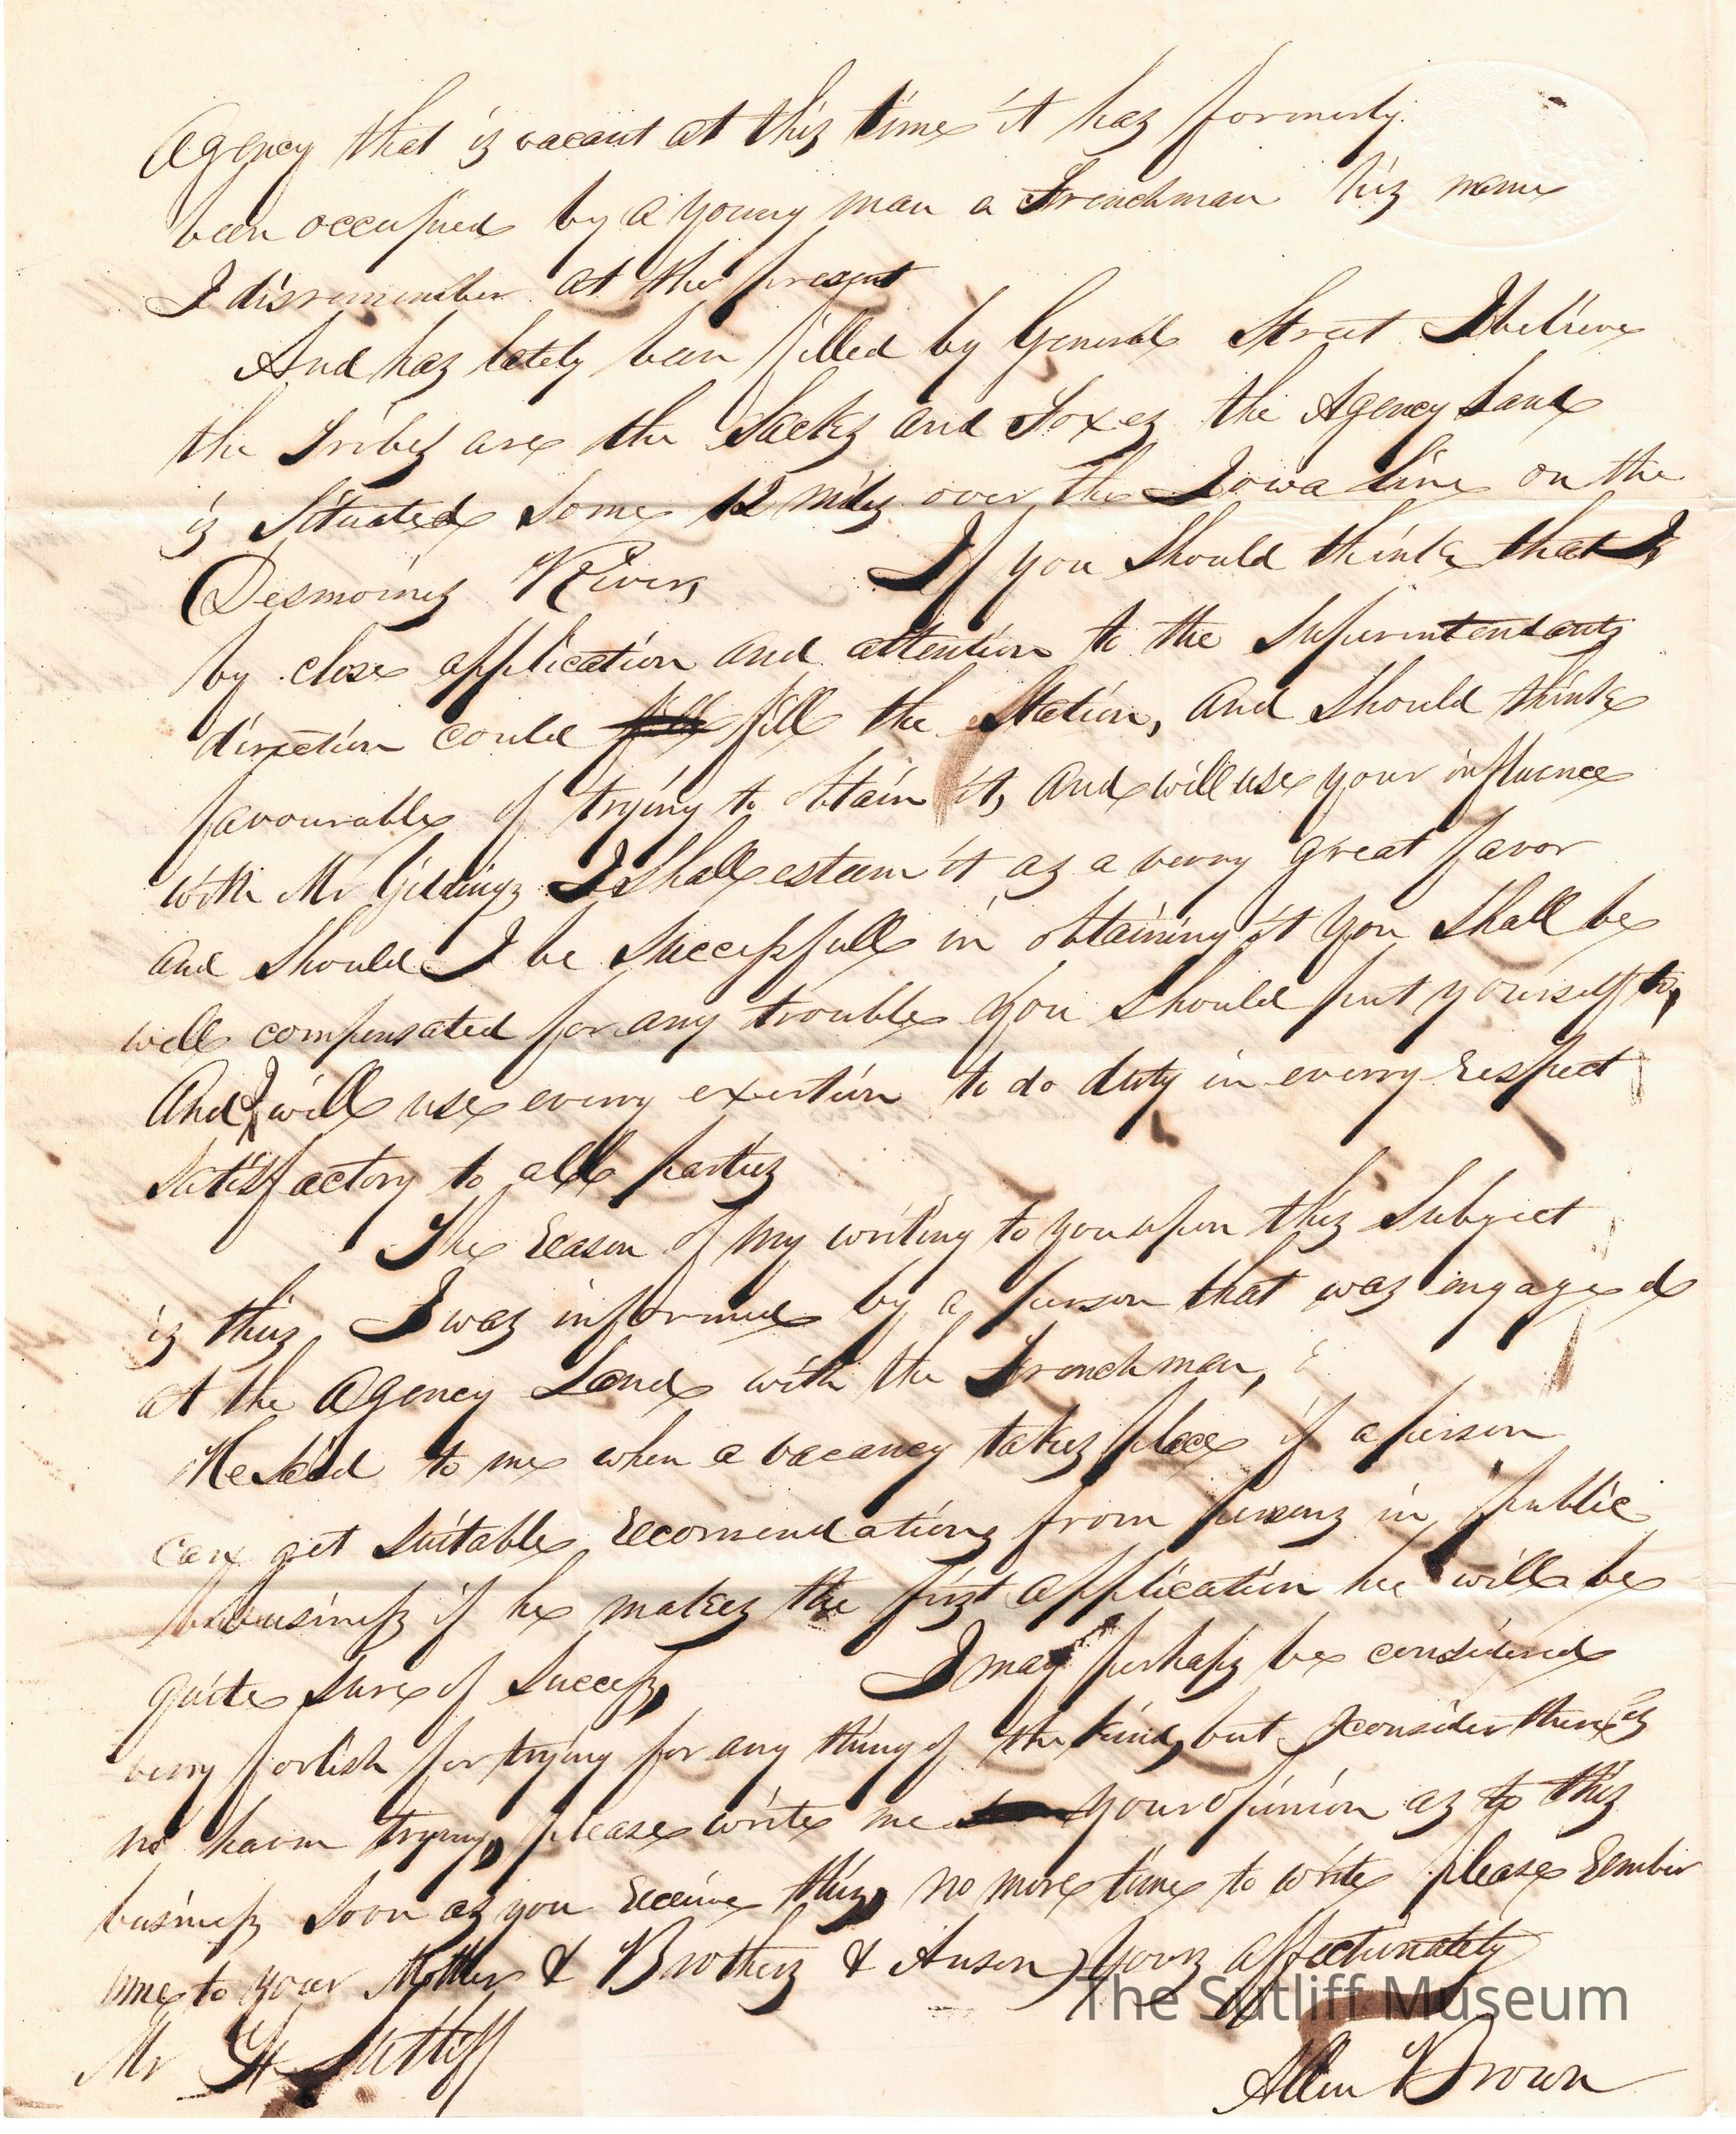 Agency that is vacant at this time it has formerly
been occupied by a young man a Frenchman his name
I disremember at the present
And has lately been filled by General Street I believe
the Tribes are the Sacks and Foxes the Agency Land
is Situated Some 12 miles over the Iowa Line on the
Desmoines River, If you Should think that I
by close application and attention to the Superintendants
direction could fill fill the Station, and Should think
favourable of trying to obtain it, and will use your influence
with Mr Giddings I Shall esteem it as a verry great favor
and Should I be Successfull in obtaining it you Shall be
well compensated for any trouble you Should put yourself to,
And I will use every exertion to do duty in every respect
Satisfactory to all parties
The reason of my writing to you upon this Subject
is this, I was informed by a person that was engaged
at the Agency Land with the Frenchman,
He Said to me when a vacancy takes place if a person
can get Suitable recomendations from persons in public
business if he makes the first application he will be
quite Sure of Success, I may perhaps be considered
verry foolish for trying for any thing of the kind, but I consider there is
no harm trying, please write me your opinion as to this
business Soon as you receive this, no more time to write please rember
me to your Mother & Brothers & Anson, Yours affectunately
The Sutliff Museum
Mr Sutliff
Allen Brown